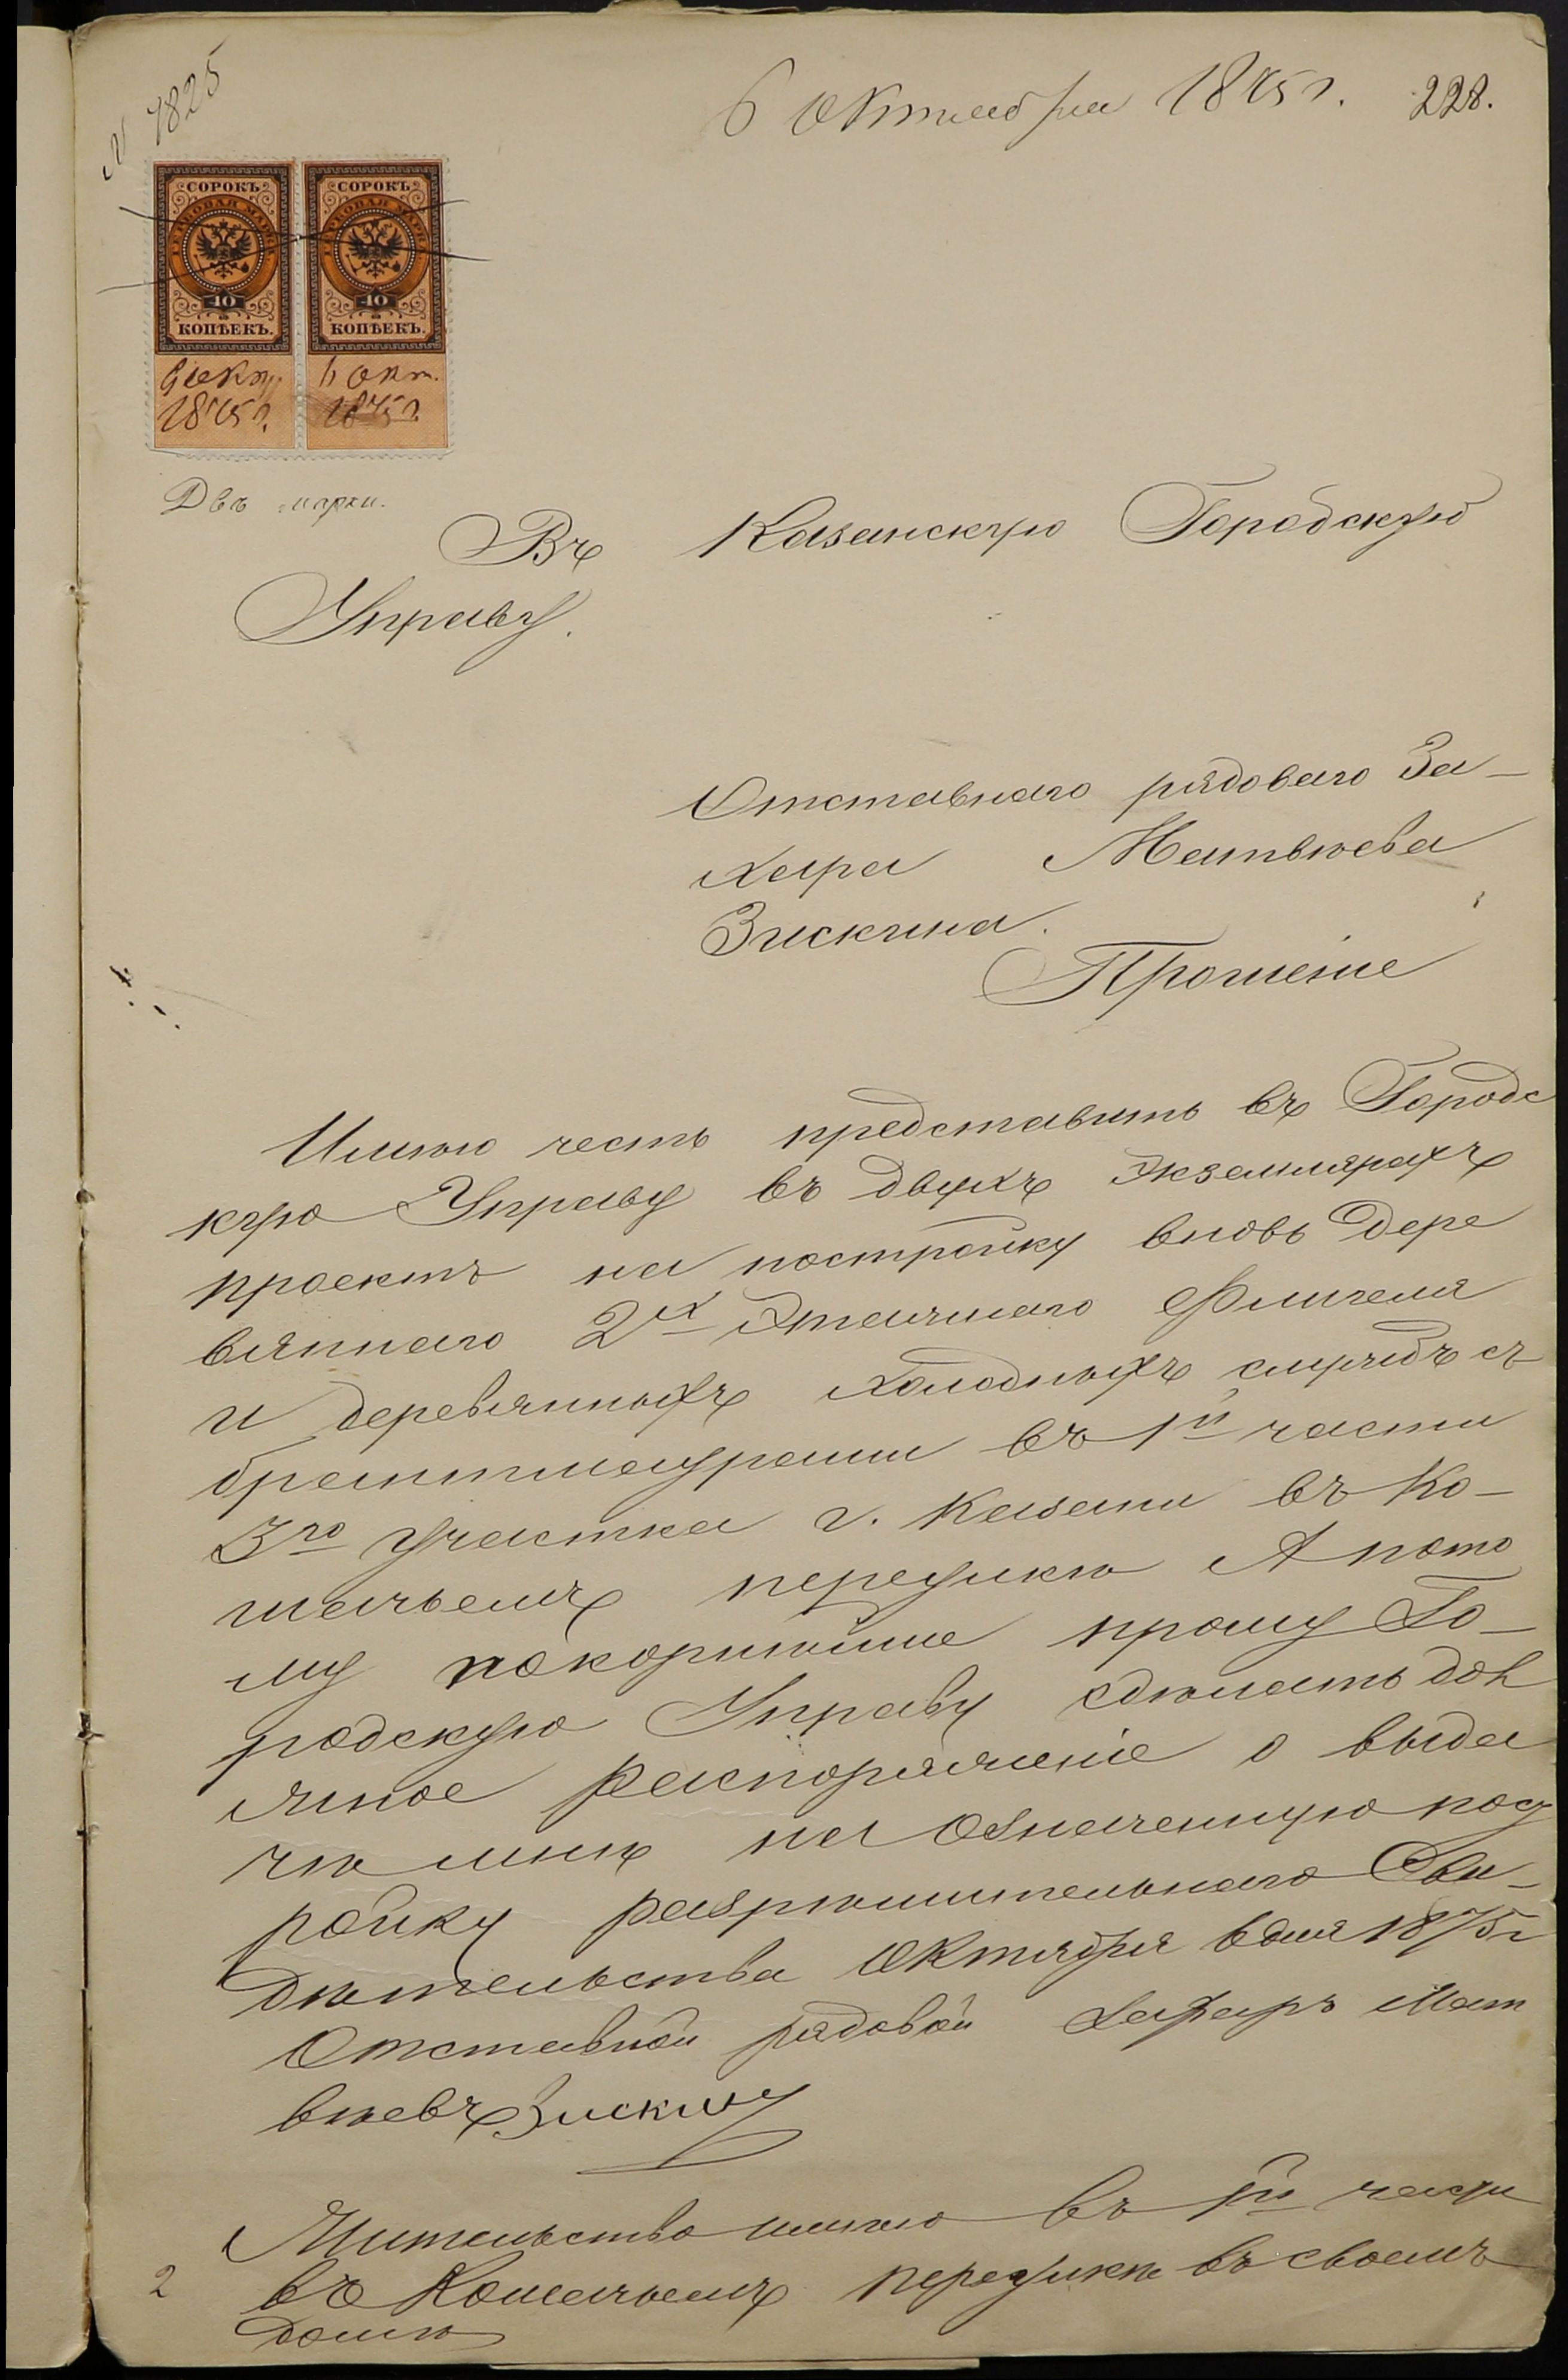 № 7825
6 Октября 1875 г. 228.
СОРОКЪ СОРОКЪ
ГЕРБОВАЯ МАРКА ГЕРБОВАЯ МАРКА
40 40
КОПѢЕКЪ. КОПѢЕКЪ.
6 окт. 6 окт.
1875 г. 1875 г.
Двѣ марки.
Въ Казанскую Городскую
Управу.
Отставнаго рядоваго За-
хара Матвѣева
Зискина.
Прошеніе
Имѣю честь представить въ Городс
кую Управу въ двухъ экземплярахъ
проектъ на постройку вновь дере
вяннаго 2х этажнаго флигеля
и деревянныхъ холодныхъ службъ съ
брантмаурами въ 1й части
3го участка г. Казани въ Ко-
шачьемъ переулкѣ А пото
му покорнѣйше прошу Го-
родскую Управу сдѣлать дол
жное распоряженіе о выда
чѣ мнѣ на означенную пост
ройку разрѣшительнаго Сви-
дѣтельства Октября 6 дня 1875 г
Отставной рядовой Захаръ Мат
вѣевъ Зискинъ
Жительство имѣю въ 1й части
2 въ Кошачьемъ переулкѣ въ своемъ
домѣ